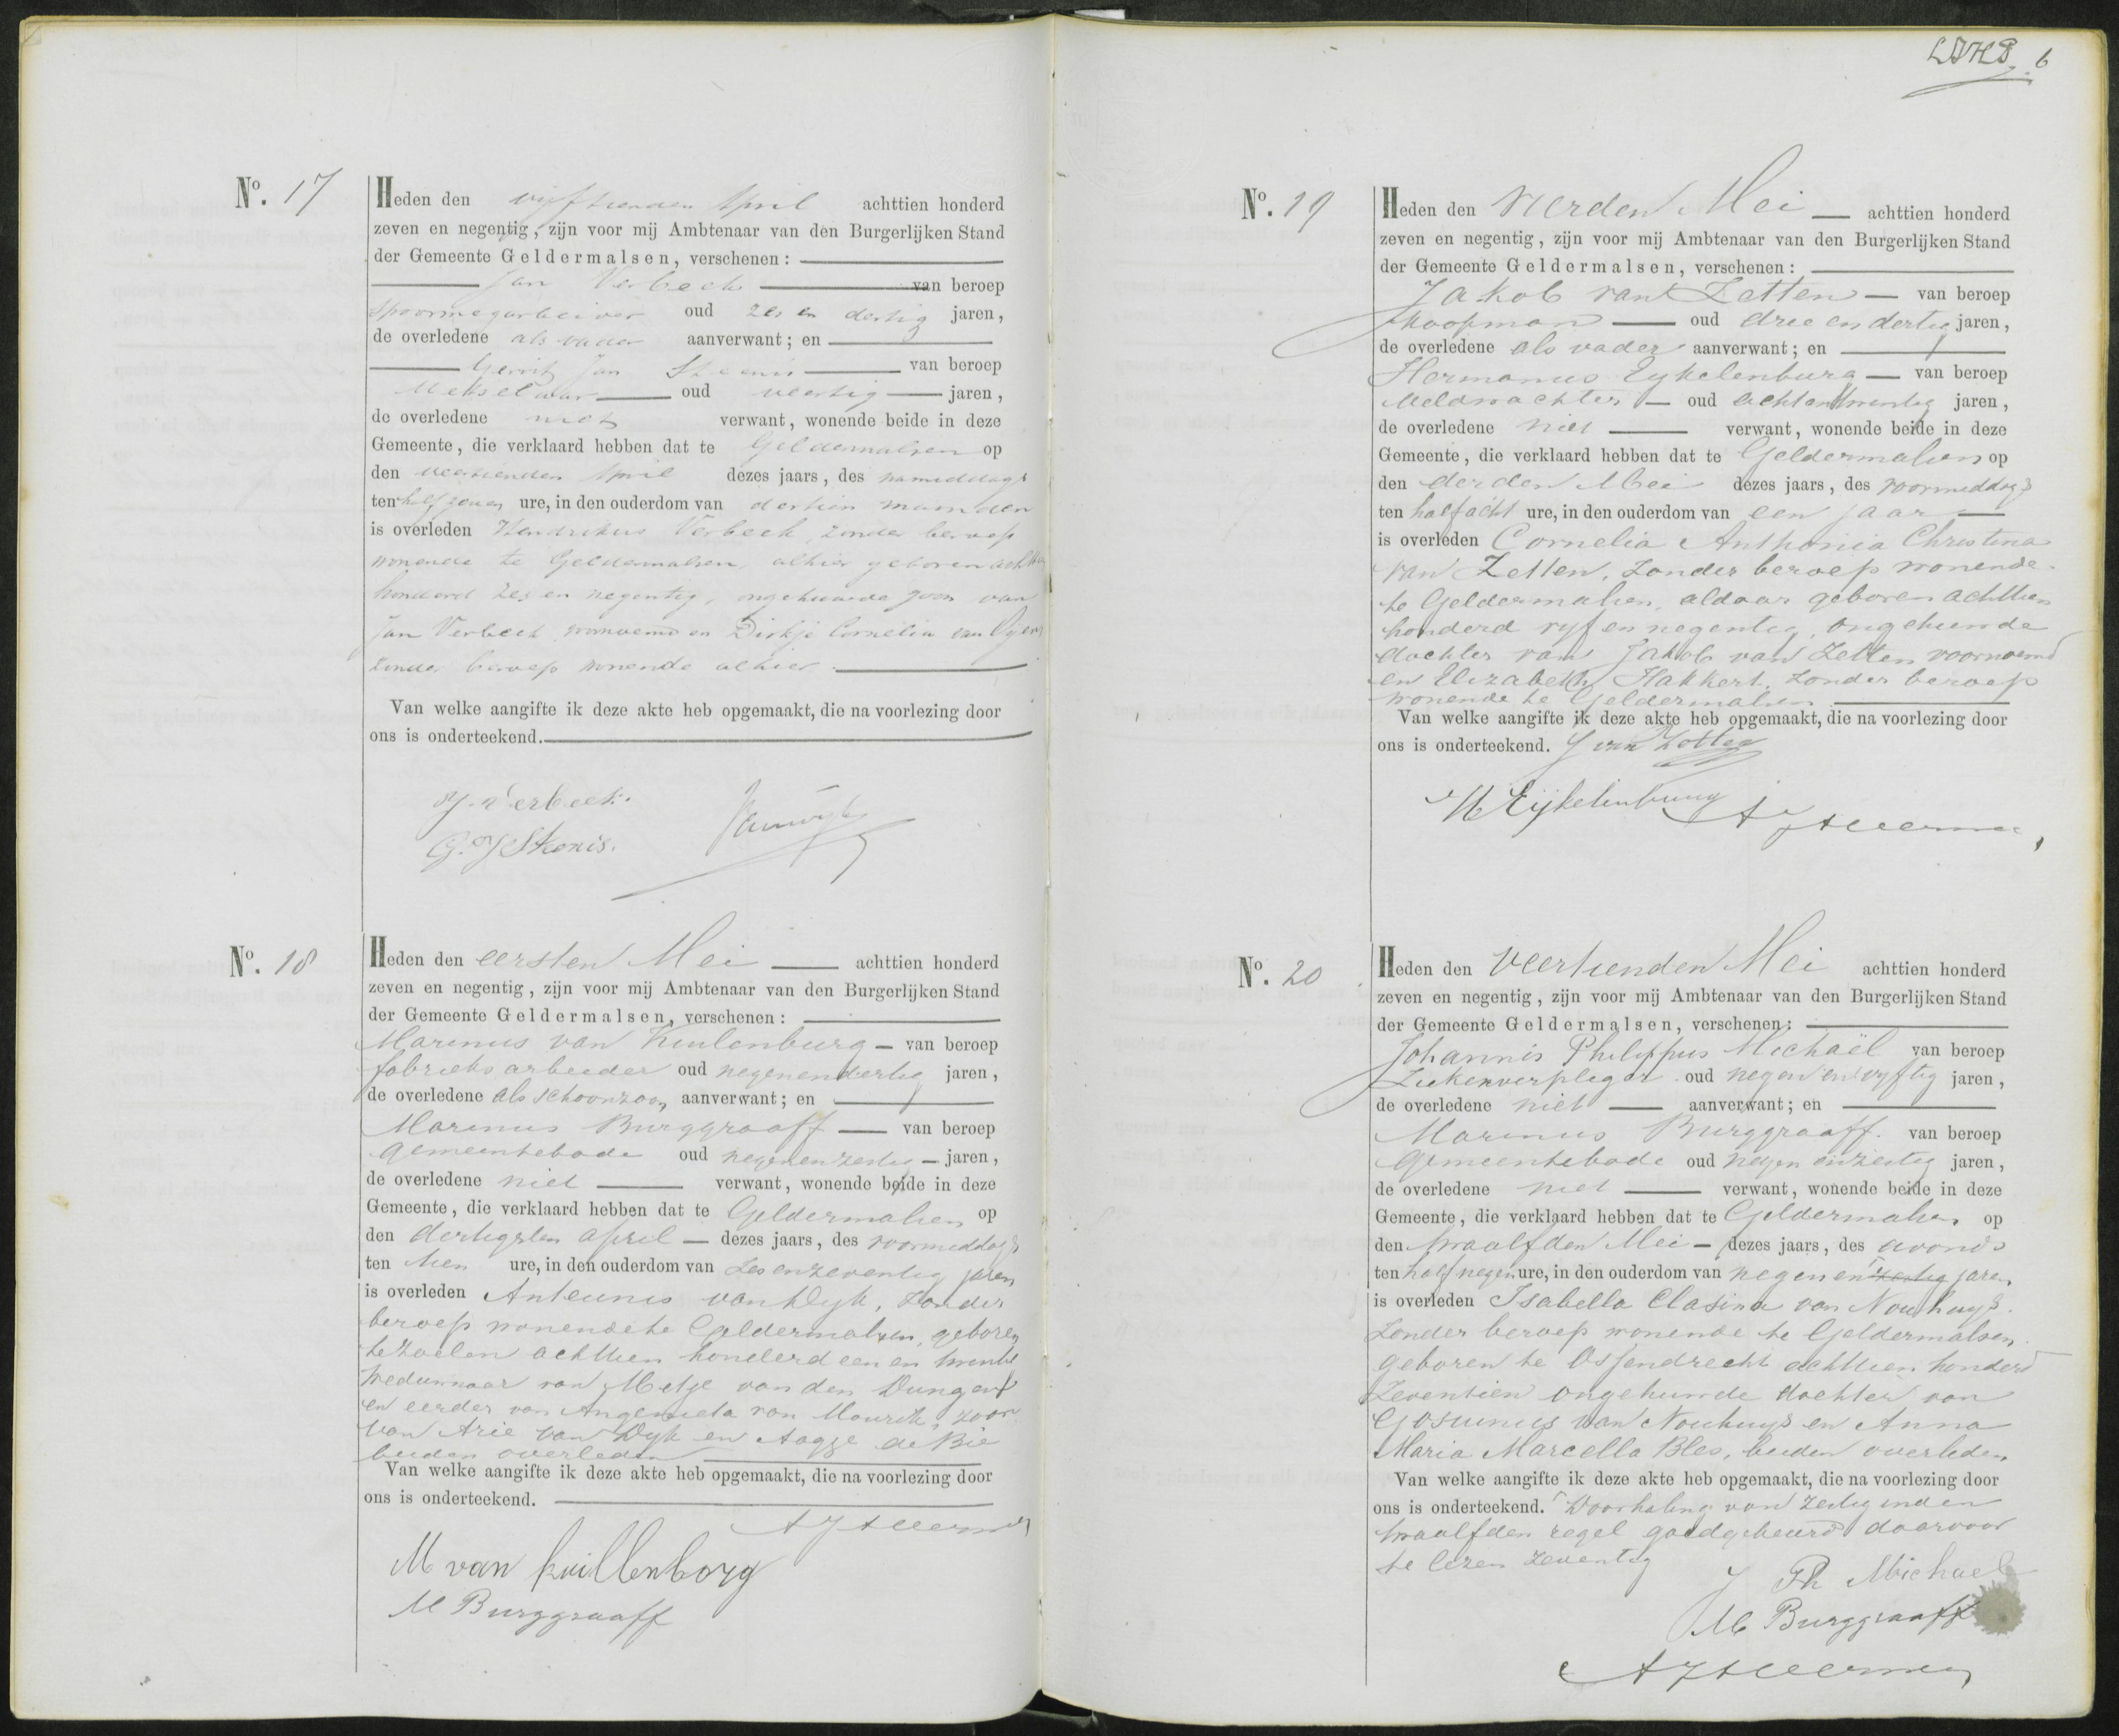 No. 17
Heden den vijftienden April achttien honderd
zeven en negentig, zijn voor mij Ambtenaar van den Burgerlijken Stand
der Gemeente Geldermalsen, verschenen:
Jan Verbeek van beroep
spoorwegarbeider oud zes en dertig jaren,
de overledene als vader aanverwant; en
Gerrit Jan van beroep
Metselaar oud veertig jaren,
de overledene niet verwant, wonende beide in deze
Gemeente, die verklaard hebben dat te Geldermalsen op
den veertienden April dezes jaars, des namiddags
ten half zeven ure, in den ouderdom van dertien maanden
is overleden Hendrikus Verbeek, zonder beroep
wonende te Geldermalsen, alhier geboren achttien
honderd zes en negentig, ongehuwde zoon van
Jan Verbeek voornoemd en Dirkje Cornelia van
zonder beroep wonende alhier.
Van welke aangifte ik deze akte heb opgemaakt, die na voorlezing door
ons is onderteekend.
J. Verbeek.
G. J Stenis.
No. 18
Heden den eersten Mei achttien honderd
zeven en negentig, zijn voor mij Ambtenaar van den Burgerlijken Stand
der Gemeente Geldermalsen, verschenen:
Marinus van Kuilenburg van beroep
fabrieks arbeider oud negenendertig jaren,
de overledene als schoonzoon aanverwant; en
Marinus Burggraaff van beroep
Gemeentebode oud negenenzestig jaren,
de overledene niet verwant, wonende beide in deze
Gemeente, die verklaard hebben dat te Geldermalsen op
den dertigsten April dezes jaars, des voormiddags
ten tien ure, in den ouderdom van Zes enzeventig jaren
is overleden Anteunis van Dyk, zonder
beroep wonende te Geldermalsen, geboren
te Zoelen achttien honderd een en twintig
Weduwnaar van Metje van den Dungen
en eerder van Angenieta van Mourik, zoon
van Arie van Dyk en Aagje de Bie
beiden overleden
Van welke aangifte ik deze akte heb opgemaakt, die na voorlezing door
ons is onderteekend.
M van kuillenborg
M Burggraaff
6
No. 19
Heden den vierden Mei achttien honderd
zeven en negentig, zijn voor mij Ambtenaar van den Burgerlijken Stand
der Gemeente Geldermalsen, verschenen:
Jakob van Zetten van beroep
koopman oud drie en dertig jaren,
de overledene als vader aanverwant; en
Hermanus Eykelenburg van beroep
Veldwachter oud achtentwintig jaren,
de overledene niet verwant, wonende beide in deze
Gemeente, die verklaard hebben dat te Geldermalsen op
den derden Mei dezes jaars, des voormiddags
ten half acht ure, in den ouderdom van een jaar
is overleden Cornelia Anthonia Christina
van Zetten, zonder beroep wonende
te Geldermalsen, aldaar geboren achttien
honderd vyf en negentig, ongehuwde
dochter van Jakob van Zetten voornoemd
en Elizabeth Hakkert, zonder beroep
wonende te Geldermalsen
Van welke aangifte ik deze akte heb opgemaakt, die na voorlezing door
ons is onderteekend. J van Zetten
H Eijkelenburg
No. 20
Heden den veertienden Mei achttien honderd
zeven en negentig, zijn voor mij Ambtenaar van den Burgerlijken Stand
der Gemeente Geldermalsen, verschenen:
Johannis Philippus Michaël van beroep
Ziekenverpleger oud negen en vyftig jaren,
de overledene niet aanverwant; en
Marinus Burggraaff. van beroep
Gemeentebode oud negen enzestig jaren,
de overledene niet verwant, wonende beide in deze
Gemeente, die verklaard hebben dat te Geldermalsen op
den twaalfden Mei dezes jaars, des avonds
ten half negen ure, in den ouderdom van negen en zestig jaren
is overleden Isabella Clasina van Nouhuys.
Zonder beroep wonende te Geldermalsen.
geboren te Ossendrecht achttien honderd
Zeventien ongehuwde dochter van
Gosuinus van Nouhuys en Anna
Maria Marcella Bles, beiden overleden
Van welke aangifte ik deze akte heb opgemaakt, die na voorlezing door
ons is onderteekend. Doorhaling van zestig inden
twaalfden regel goedgekeurd daarvoor
te lezen zeventig
J Ph Michael
M Burggraaff